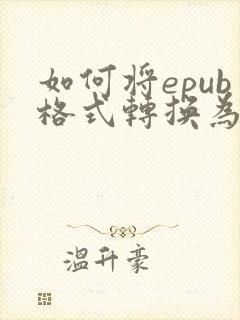 如何将epub
格式轉換為
溫升豪